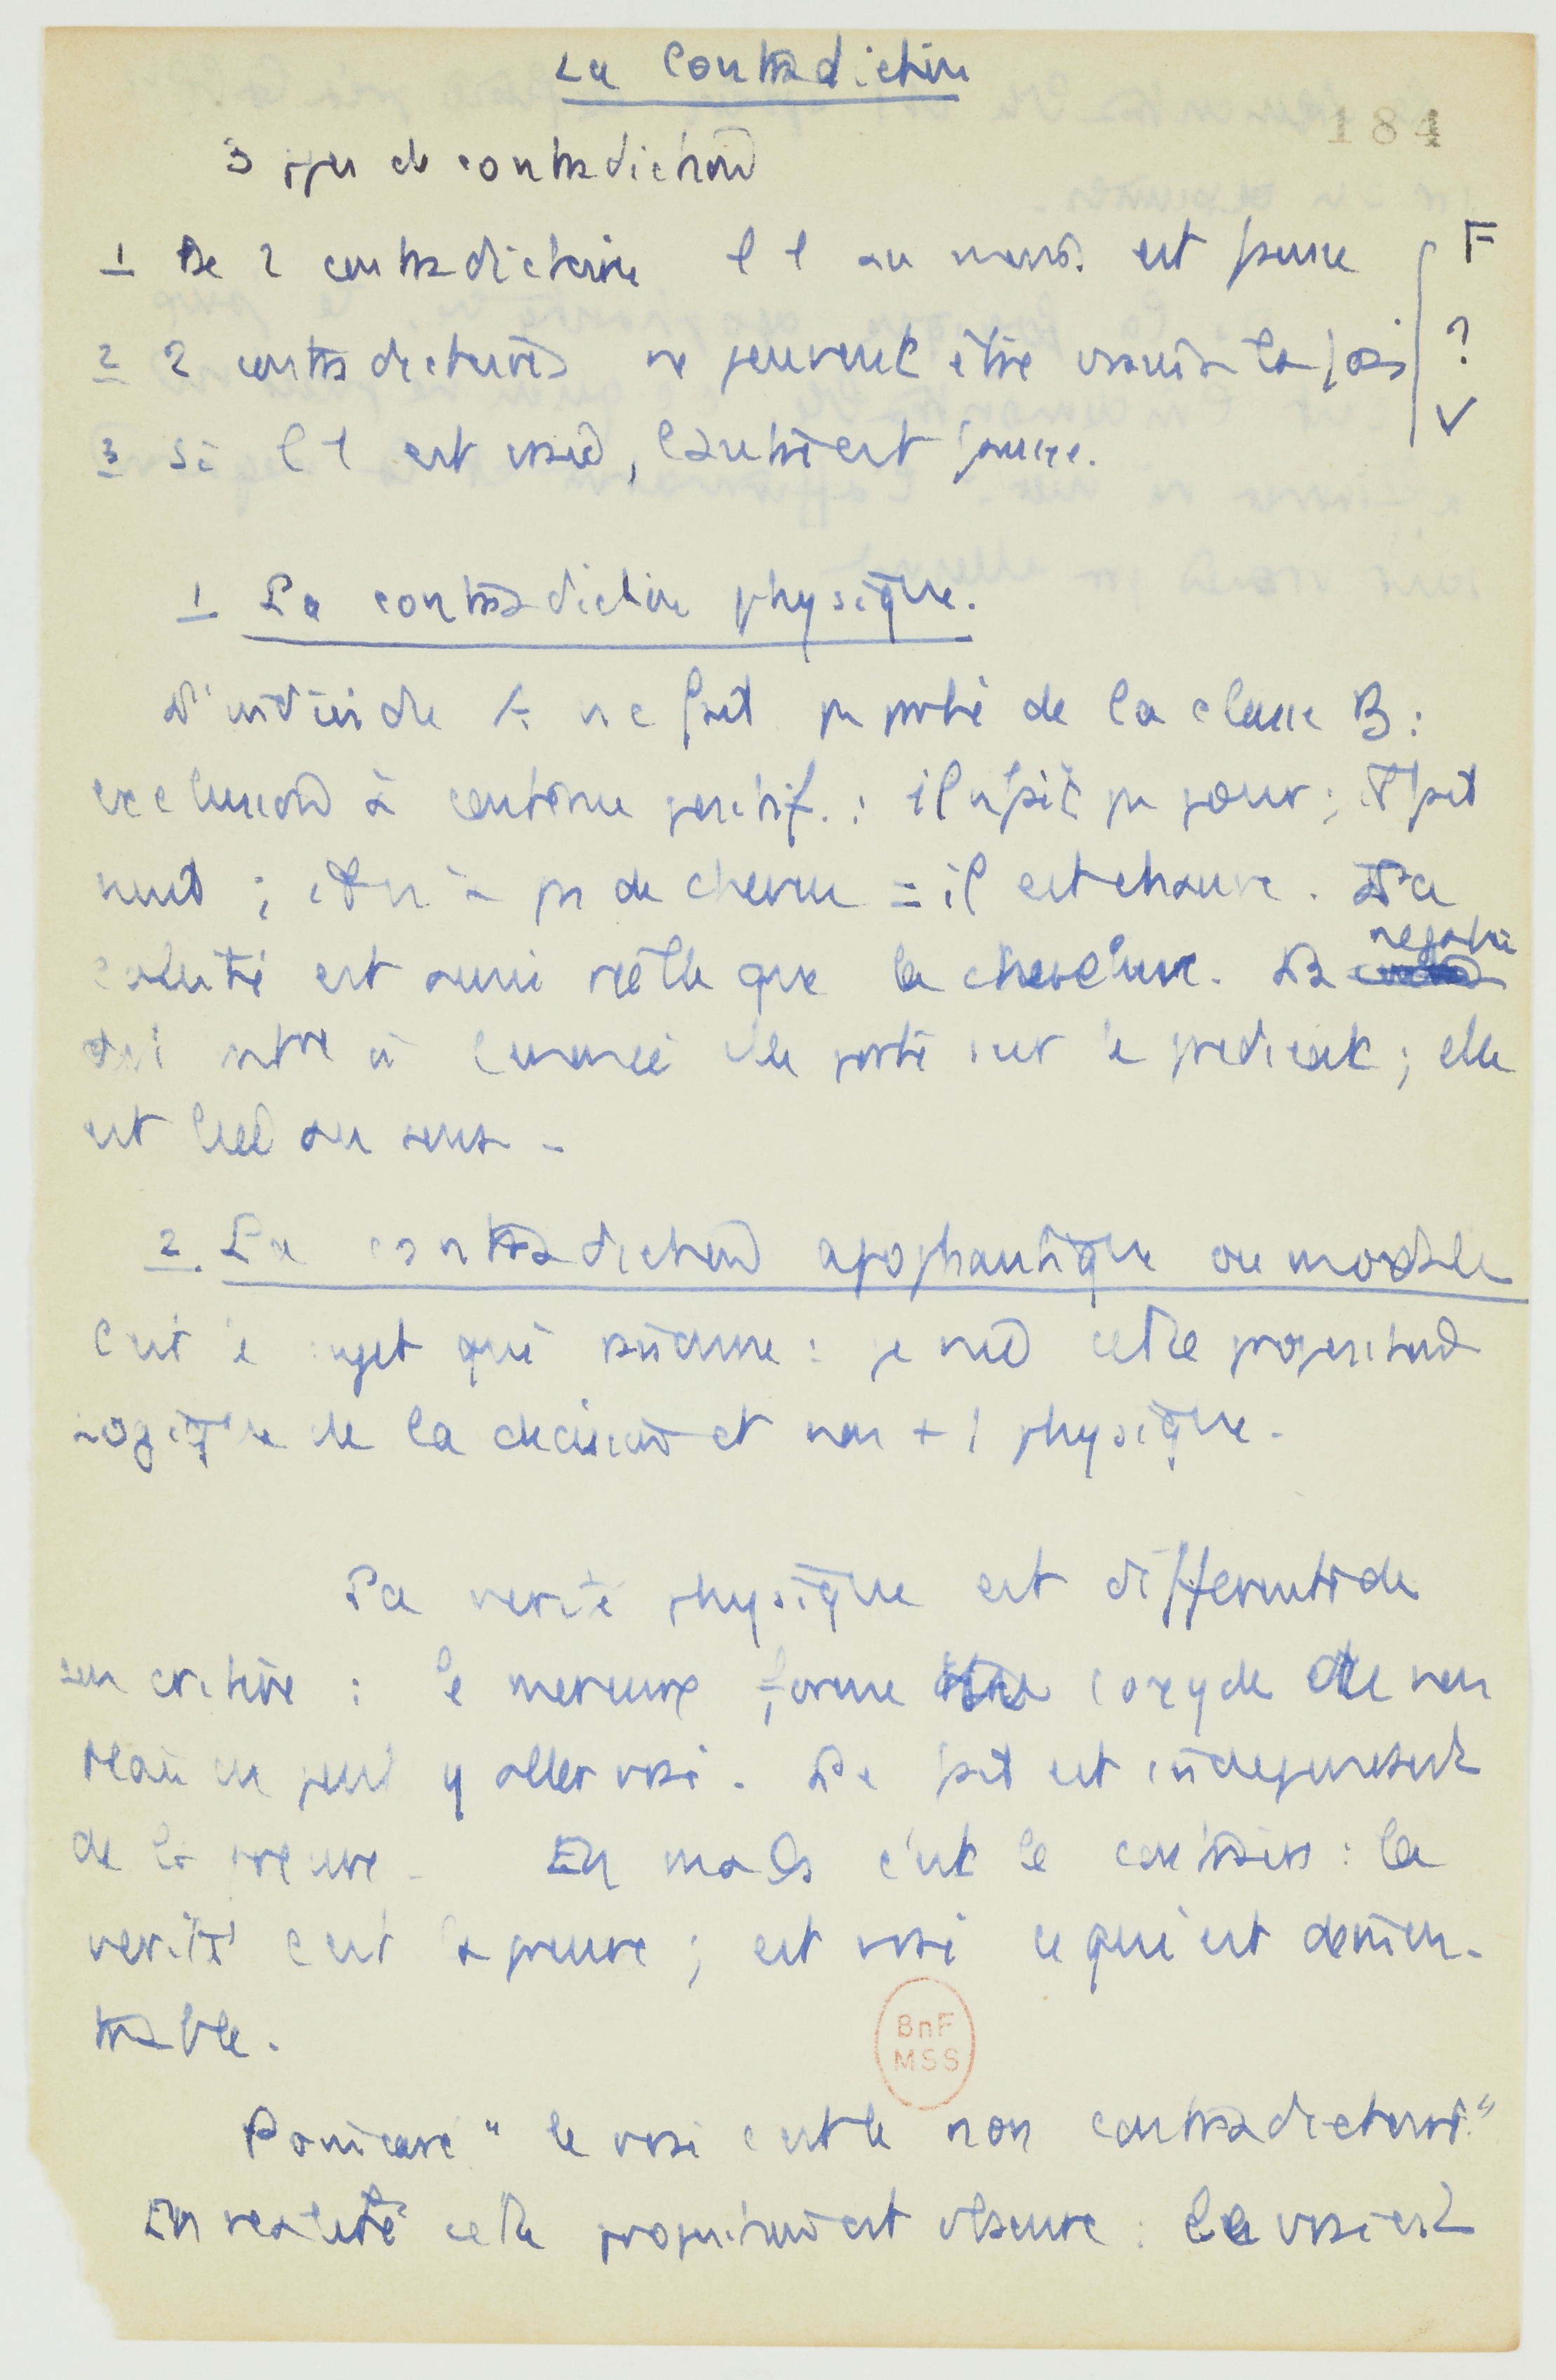 La contradiction
184
3 types de contradiction
1 De 2 contradictoires l'1 au moins est fausse F
2 2 contradictoires ne peuvent être vraies à la fois ?
3 Si l'1 est vraie, l'autre est fausse. V
1 La contradiction physique.
L'individu A ne fait pas partie de la classe B :
exclusion à contenu positif : il n'fait pas jour ; il fait
nuit ; il n'a pas de cheveux = il est chauve. La
calvitie est aussi réelle que la chevelure. La negation
est à l'enonce elle porte sur le predicat ; elle
est liée au sens -
2. La contradiction apophantique ou modale
C'est le sujet qui : je nie cette proposition
logique de la decision et non + 1 physique.
La verité physique est differente de
son critère : le mercure forme l'oxyde de
on peut y aller voir. Le fait est independant
de la preuve - En maths c'est le contraire : la
verité c'est la preuve ; est vrai ce qui est demon-
trable.
BnF
MSS
Poincaré " le vrai c'est le non contradictoire "
En realité cette proposition est obscure : le vrai est